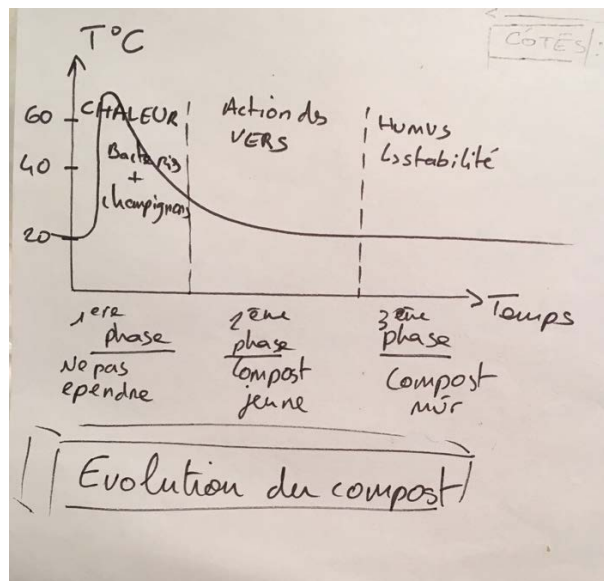 T°C
CÔTÉS :
60
40
20
CHALEUR
Bacteries
+
champignons
Action des
VERS
Humus
↳stabilité
Temps
1ere
phase
Ne pas
ependre
2ème
phase
Compost
jeune
3ème
phase
Compost
mûr
Evolution du compost